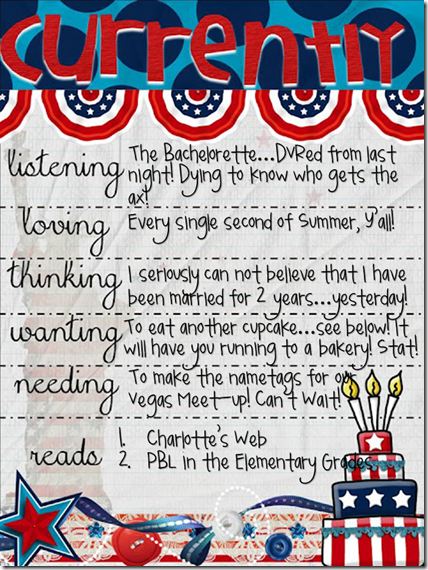 currently
listening
The Bachelorette...DVRed from last
night! Dying to know who gets the
ax!
loving
Every single second of Summer, y'all!
thinking
I seriously can not believe that I have
been married for 2 years...yesterday!
wanting
To eat another cupcake...see below! It
will have you running to a bakery! Stat!
needing
To make the nametags for our
Vegas Meet-up! Can't Wait!
reads
1. Charlotte's Web
2. PBL in the Elementary Grades